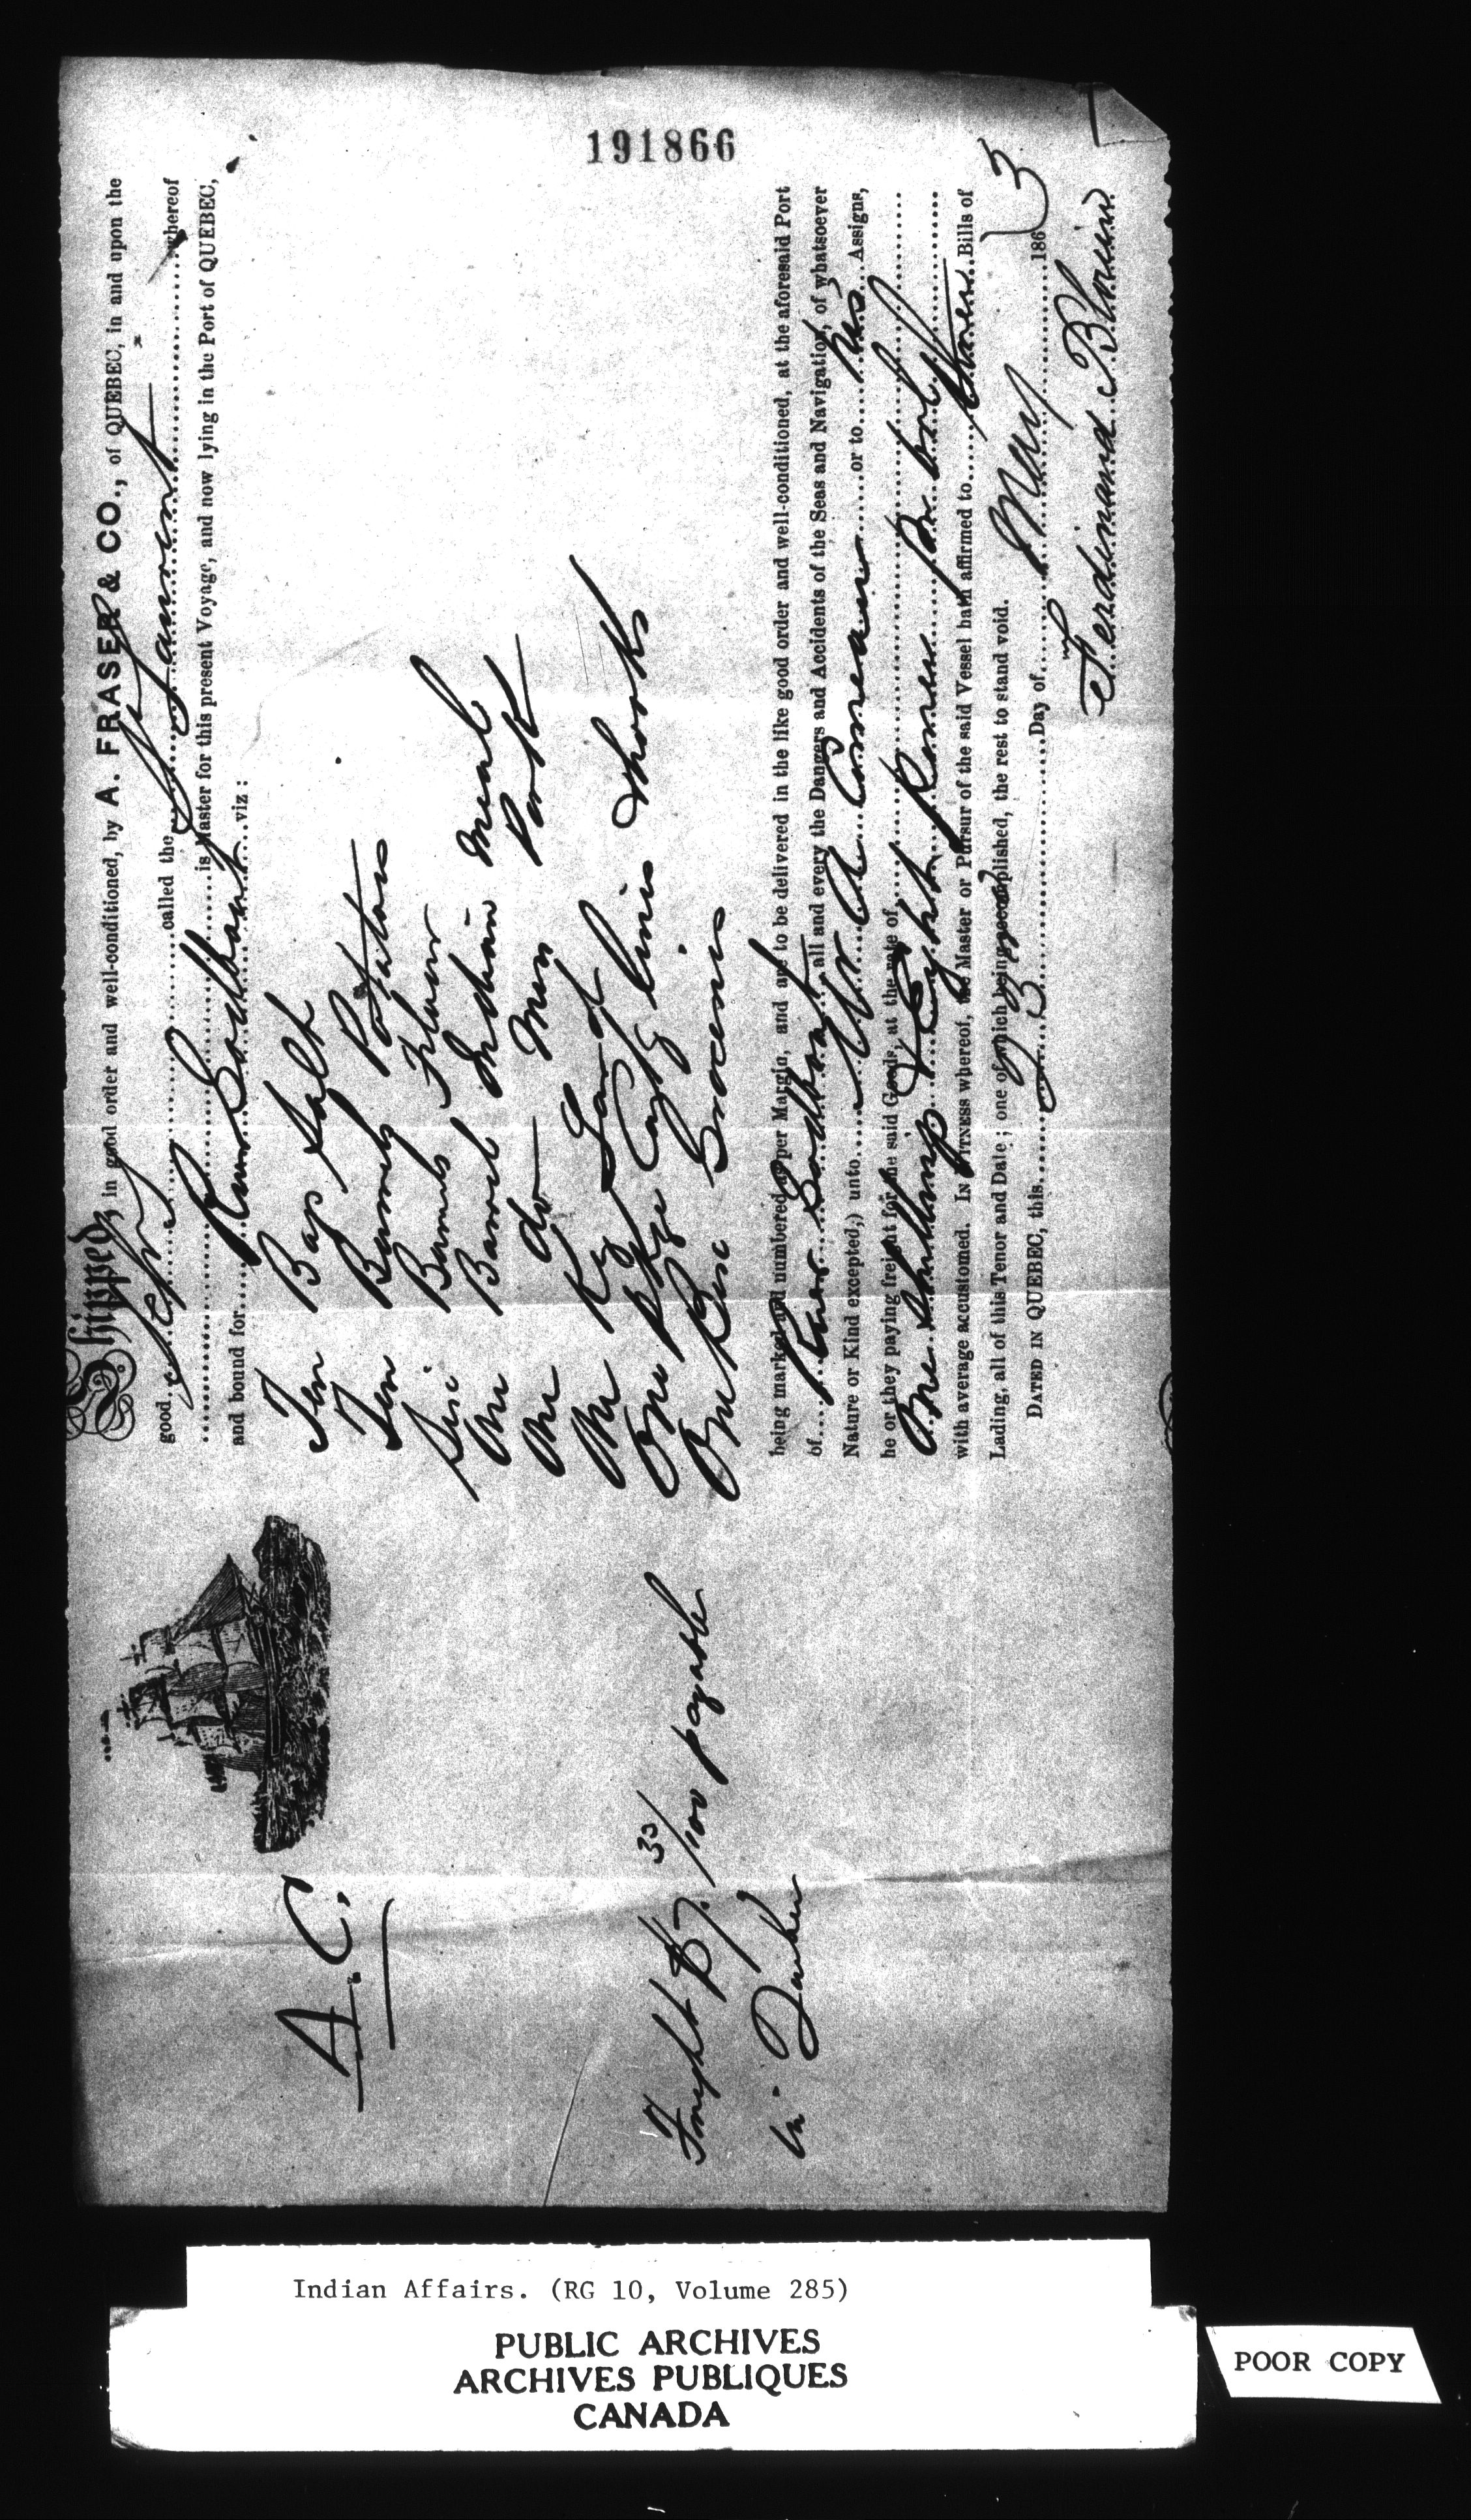 191866
Shipped, in good order and well-conditioned, by A. FRASER & CO., of QUEBEC, in and upon the
good called the whereof
is Master for this present Voyage, and now lying in the Port of QUEBEC,
and bound for River viz :
A. C.
Ten Bags Salt
Ten Barrels Potatoes
Six Barrels Flour
One Barrel Indian Meal
One do Mess Pork
One Keg Lard
One Pkge Lines Hooks
One Box Groceries
Freight $7. 33/100 payable
in
being marked and numbered as per Margin, and are to be delivered in the like good order and well-conditioned, at the aforesaid Port
of River all and every the Dangers and Accidents of the Seas and Navigation, of whatsoever
Nature or Kind excepted,) unto Mr A Comeau or to his Assigns,
he or they paying freight for the said Goods, at the rate of
One Shilling & Eight Pence Pr brl
with average accustomed. IN WITNESS whereof, the Master or Pursur of the said Vessel hath affirmed to three Bills of
Lading, all of this Tenor and Date ; one of which being accomplished, the rest to stand void.
DATED IN QUEBEC, this 23 Day of May 1863
Ferdinand Blouin
Indian Affairs. (RG 10, Volume 285)
PUBLIC ARCHIVES
ARCHIVES PUBLIQUES
CANADA
POOR COPY